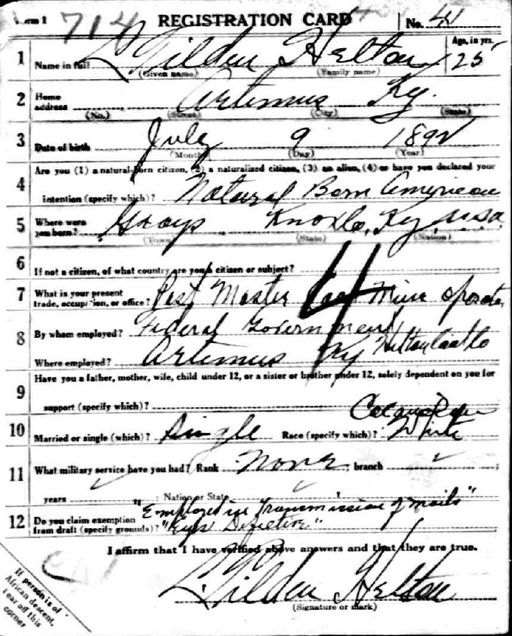 Form 1 714 REGISTRATION CARD No. 41
1 Name in full L. Tilden Helton Age, in yrs. 25
(Given name) (Family name)
2 Home address Artemus Ky.
(No.) (Street) (City) (State)
3 Date of birth July 9 1892
(Month) (Day) (Year)
Are you (1) a natural-born citizen, (2) a naturalized citizen, (3) an alien, (4) or have you declared your
4 intention (specify which)? Natural Born American
5 Where were you born? Grays Knox Co. Ky. U.S.A.
(Town) (State) (Nation)
6 If not a citizen, of what country are you a citizen or subject?
7 What is your present trade, occupation, or office? Post Master Coal Mine operator
8 By whom employed? Federal Government
Helton Coal Co
Where employed? Artemus Ky
9 Have you a father, mother, wife, child under 12, or a sister or brother under 12, solely dependent on you for
support (specify which)?
Caucasian
10 Married or single (which)? Single Race (specify which)? White
11 What military service have you had? Rank None branch
years Nation or State
12 Do you claim exemption from draft (specify grounds)? "Employed in Transmission of mails"
"Eyes Defective"
I affirm that I have verified above answers and that they are true.
L. Tilden Helton
(Signature or mark)
If person is of
African descent,
tear off this
corner